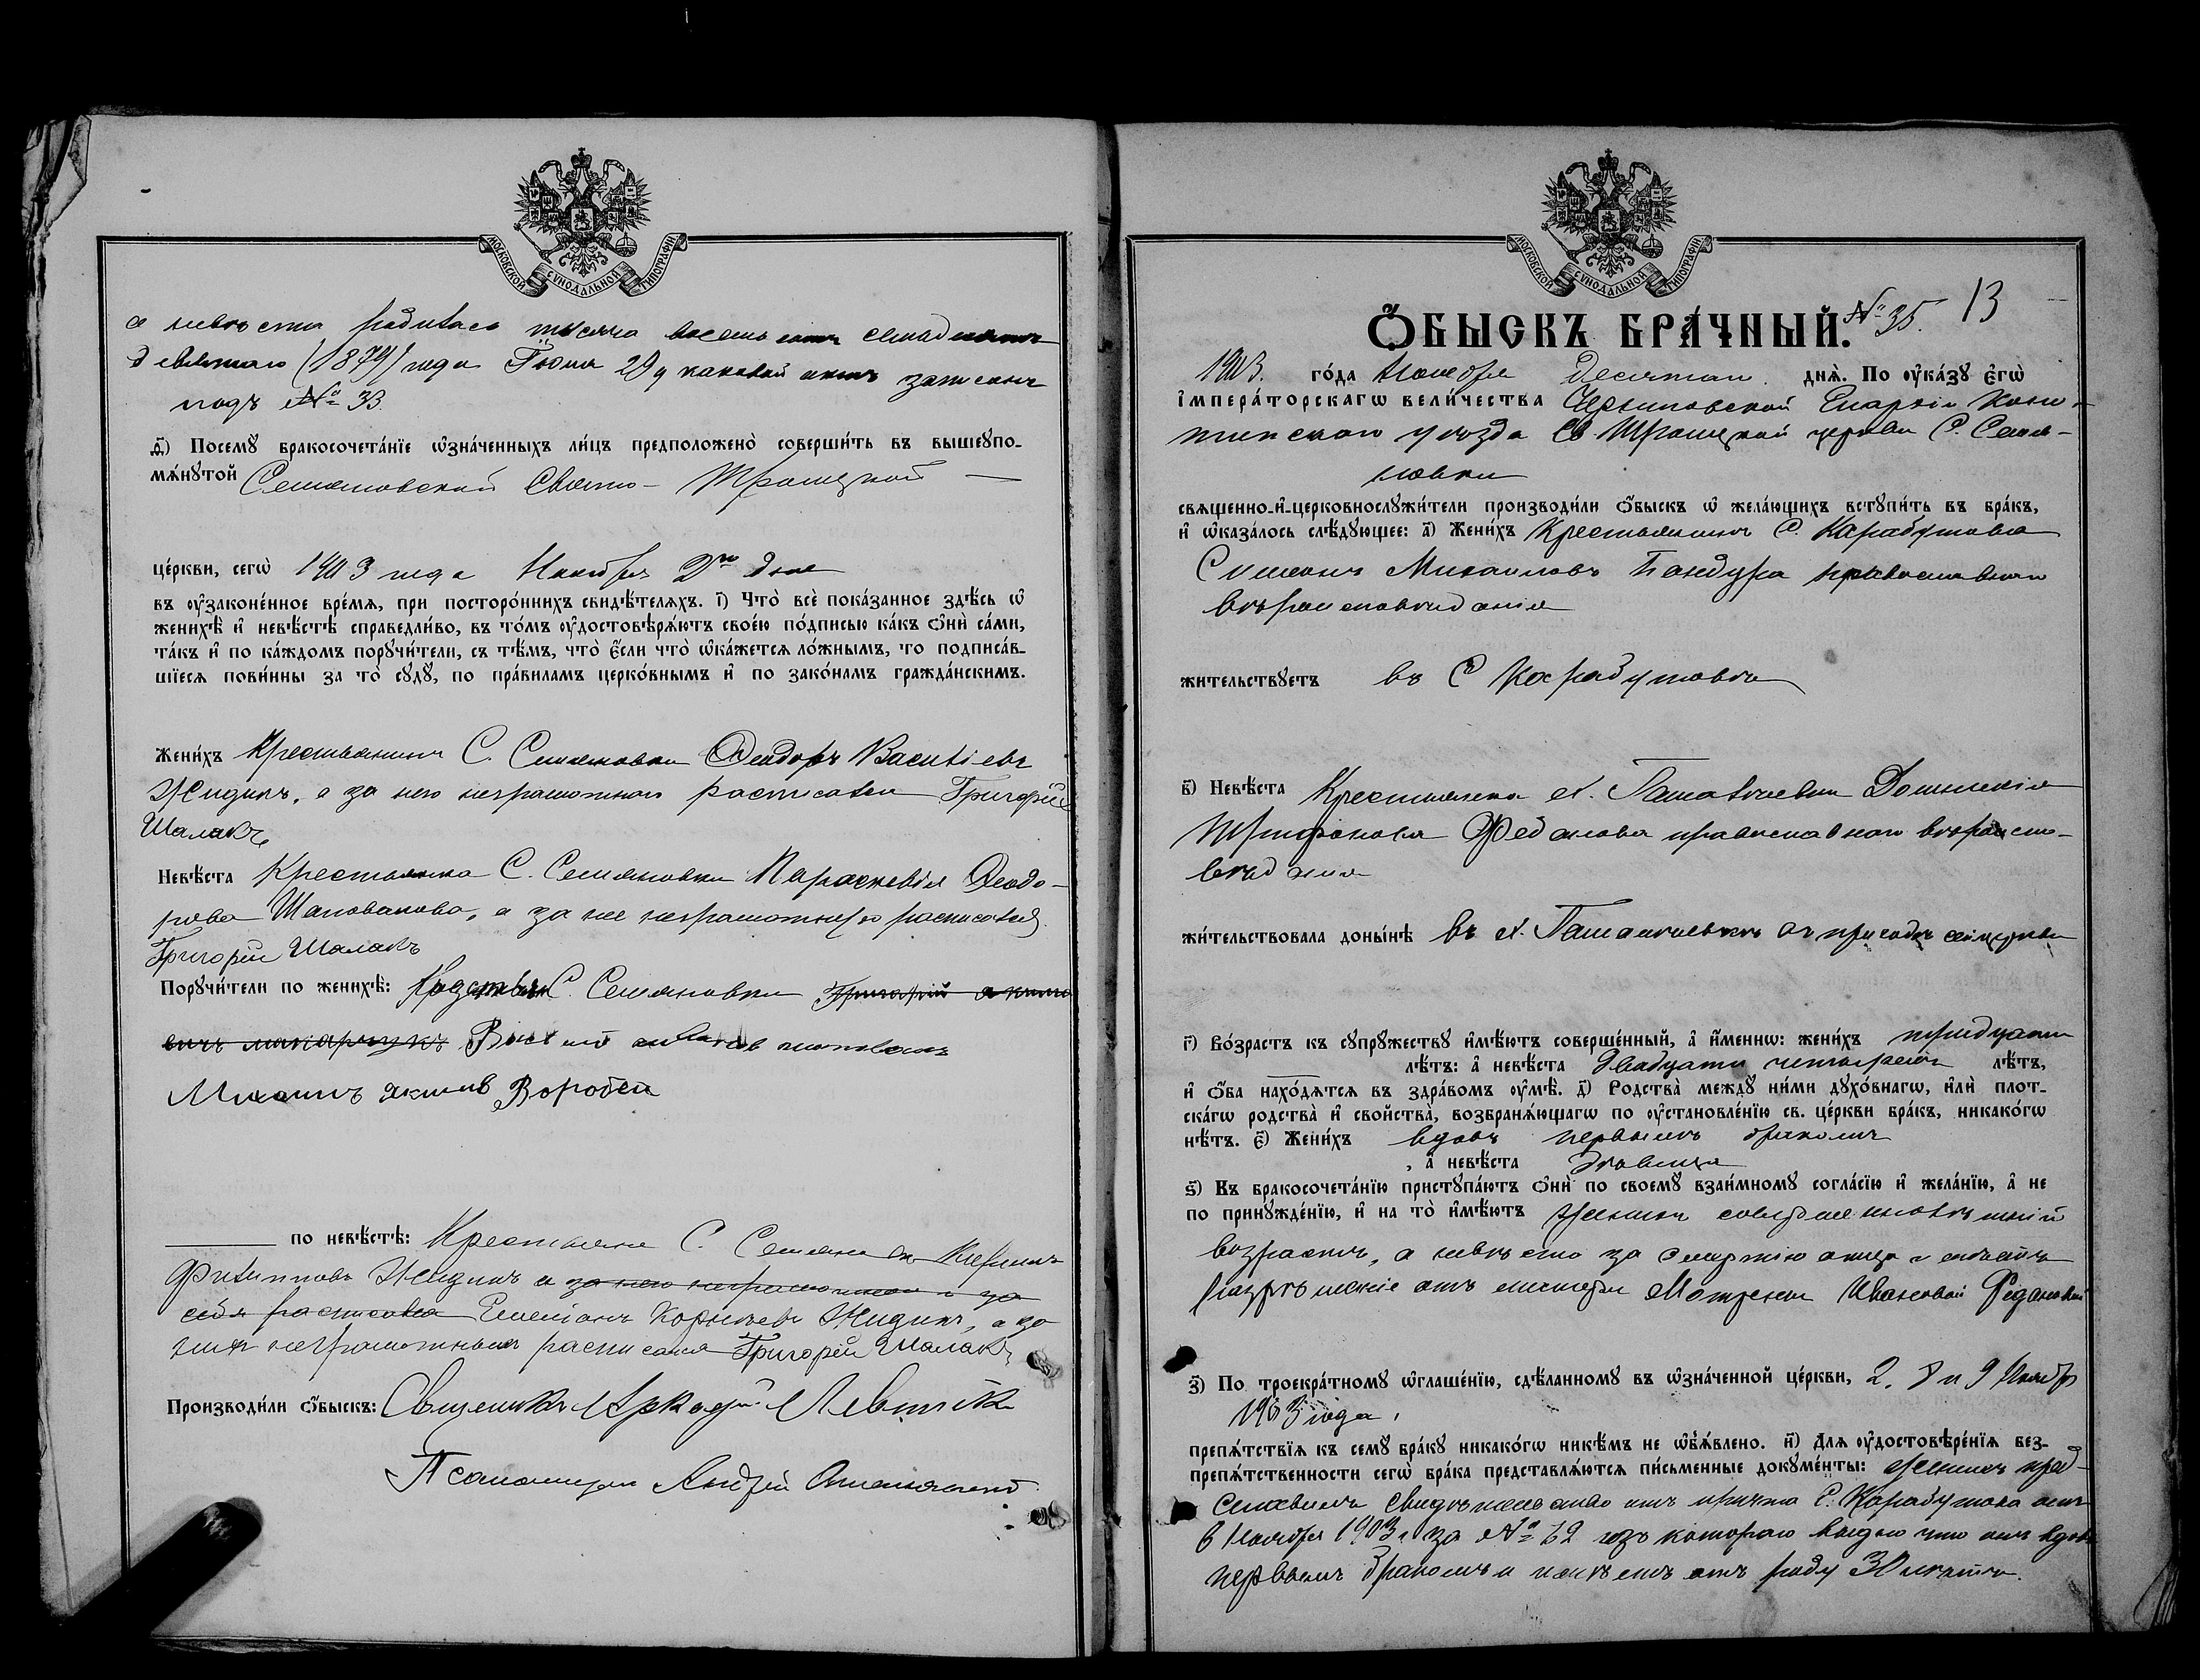 МОСКОВСКОЙ СѴНОДАЛЬНОЙ ТИПОГРАФІИ
а невѣста родилась тысяча восемьсотъ семьдесятъ
девятаго (1879) года Іюня 29 у каковой актъ записанъ
подъ № 33.
д҃і) Посемꙋ бракосочета́нїе ѡ҆зна́ченныхъ ли́цъ предположено̀ соверши́ть въ вышеꙋпо-
мѧ́нꙋтой Семяновской Свято-Троицкой
це́ркви, сегѡ̀ 1903 года Ноября 2го дня
въ ᲂу҆зако́не́нное вре́мѧ, при посторо́ннихъ свидѣ́телѧхъ. і҃) Что̀ всѐ пока́занное здѣ́сь ѡ҆
женихѣ̀ и҆ невѣ́стѣ справедли́во, въ то́мъ ᲂу҆достовѣрѧ́ютъ свое́ю по́дписью ка́къ ѻ҆нѝ са́ми,
та́къ и҆ по ка́ждомъ порꙋчи́тели, съ тѣ́мъ, что̀ є҆́сли что̀ ѡ҆ка́жетсѧ ло́жнымъ, то подписа́в-
шїесѧ пови́нны за то̀ сꙋдꙋ̀, по пра́виламъ церко́внымъ и҆ по зако́намъ гражда́нскимъ.
Жени́хъ Крестьянинъ С. Семяновки Ѳеодоръ Василіевъ
Жидикъ, а за него неграмотнаго расписался Григорій
Шалакъ
Невѣ́ста Крестьянка С. Семяновки Параскевія Ѳеодо-
рова Шаповалова, а за нее неграмотную росписался
Григорій Шалакъ
Порꙋчи́тели по женихѣ̀: С. Семяновки Григорій
Михаилъ Якимовъ Воробей
по невѣ́стѣ: Крестьяне С. Семяновки
Филипповъ Жидикъ и за него неграмотнаго и за
себя расписался Емеліанъ Корнѣевъ Жидикъ, а за
нихъ неграмотныхъ расписался Григорій Шалакъ
Производи́ли ѻ҆́быскъ: Священникъ Аркадій Левитскій
Псаломщикъ Андрей
МОСКОВСКОЙ СѴНОДАЛЬНОЙ ТИПОГРАФІИ
Ѻ҆́БЫСКЪ БРА́ЧНЫЙ. № 35. 13
1903. го́да Ноября Десятаго днѧ̀. По ᲂу҆ка́зꙋ є҆гѡ̀
і҆мпера́торскагѡ вели́чества Черниговской Епархіи Коно-
топскаго уѣзда Св. Троицкой церкви С. Семя-
новки
свѧщенно-и҆-церковнослꙋжи́тели производи́ли ѻ҆́быскъ ѡ҆ жела́ющихъ встꙋпи́ть въ бра́къ,
и҆ ѡ҆каза́лось слѣ́дꙋющее: а҃) Жени́хъ Крестьянинъ С. Карабутова
Симеонъ Михаиловъ Бандура православнаго
вѣроисповѣданія
жи́тельствꙋетъ въ С Карабутовѣ
в҃) Невѣ́ста Крестьянка х. Домникія
Трифонова Феданова православнаго вѣроиспо-
вѣданія
жи́тельствовала доны́нѣ въ х. въ приходѣ сей церкви
г҃) Во́зрастъ къ сꙋпрꙋ́жествꙋ и҆мѣ́ютъ соверше́нный, а҆ и҆́меннѡ: жени́хъ тридцати
лѣ́тъ: а҆ невѣ́ста двадцати четырехъ лѣ́тъ,
и҆ ѻ҆́ба нахо́дѧтсѧ въ здра́вомъ ᲂу҆мѣ̀. д҃) Родства̀ междꙋ ни́ми дꙋхо́внагѡ, и҆лѝ плот-
ска́гѡ родства̀ и҆ свойства̀, возбранѧ́ющагѡ по ᲂу҆становле́нїю св. це́ркви бра́къ, никако́гѡ
нѣ́тъ. є҃) Жени́хъ вдовъ первымъ бракомъ
, а҆ невѣ́ста дѣвица
ѕ҃) Къ бракосочета́нїю пристꙋпа́ютъ ѻ҆нѝ по своемꙋ̀ взаи́мномꙋ согла́сїю и҆ жела́нїю, а҆ не
по принꙋжде́нїю, и҆ на то̀ и҆мѣ́ютъ Женихъ совершеннолѣтній
возрастъ, а невѣста за смертію отца имѣетъ
разрѣшеніе отъ матери Мотроны Ивановой Федановой
з҃) По троекра́тномꙋ ѡ҆глаше́нїю, сдѣ́ланномꙋ въ ѡ҆зна́ченной це́ркви, 2, 8 и 9 Ноября
1903 года,
препѧ́тствїѧ къ семꙋ̀ бра́кꙋ никако́гѡ никѣ́мъ не ѡ҆б̾ѧ́влено. и҃) Для ᲂу҆достовѣре́нїѧ без-
препѧ́тственности сегѡ̀ бра́ка представлѧ́ютсѧ пи́сьменные докꙋме́нты: Женихъ пред-
ставилъ свидѣтельство отъ причта С. Карабутова отъ
6 Ноября 1903 г за № 62 изъ котораго видно что онъ вдовъ
первымъ бракомъ и имѣетъ отъ роду 30 лѣтъ.